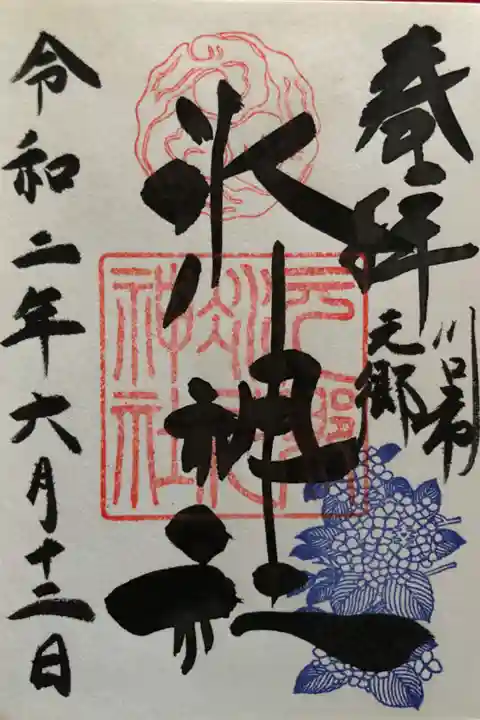 奉拝
川口市
元郷
氷川神社
元郷氷川神社
令和二年六月十二日